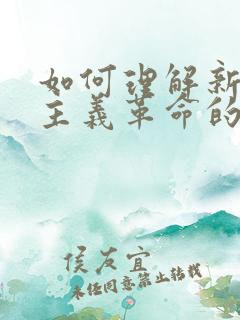 如何理解新
主义革命的
侯友宜
未经同意禁止转载